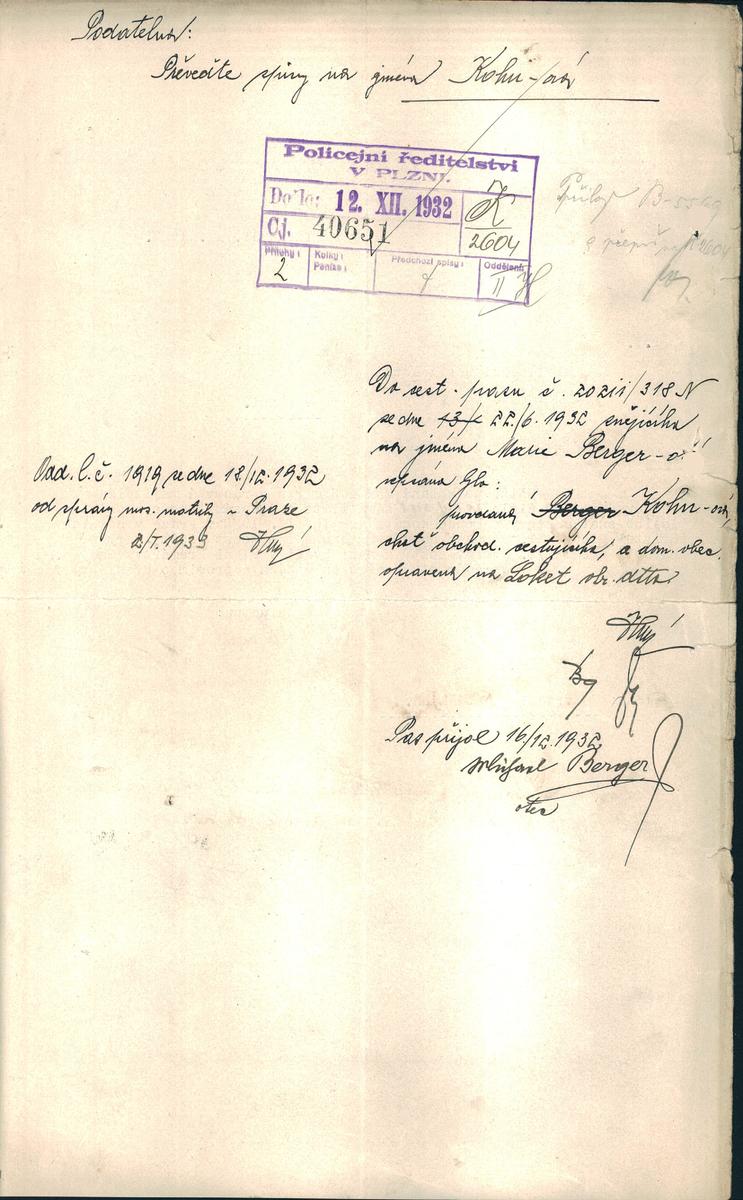 Podatelna:
Převeďte spisy na jméno Kohn-ová
Policejní ředitelství
V PLZNI.
Došlo: 12. XII. 1932
Čj. 40651
K
2604
Přílohy:
2
Kolky:
Peníze:
Předchozí spisy:
Oddělení:
II
B-5569
Do cest. pasu č. 20211/318 N
ze dne 22./6. 1932 znějícího
na jméno Marie Berger-ová
provdaná Berger Kohn-ová,
choť obchod. cestujícího, a dom. obec
opravena na Loket ob. dtto
Vad. l. č. 1919 ze dne 18/12. 1932
od správy mos. matriky v Praze
2/I. 1933
Pas přijal 16/12. 1932
Michael Berger
otec